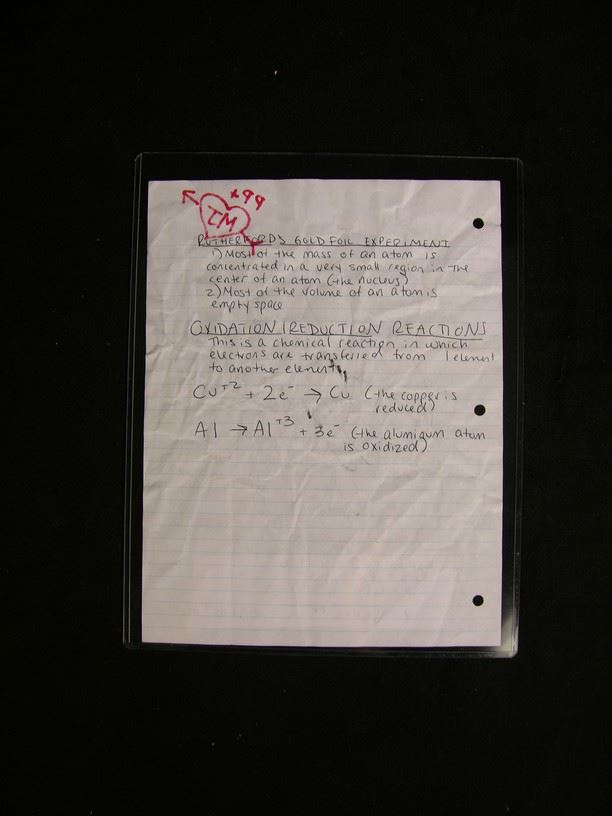 *99
IM
RUTHERFORDS GOLD FOIL EXPERIMENT
1) Most of the mass of an atom is
concentrated in a very small region in the
center of an atom (the nucleus)
2) Most of the volume of an atom is
empty space
OXIDATION/REDUCTION REACTIONS
This is a chemical reaction in which
electrons are transferred from 1 element
to another element.
Cu⁺² + 2e⁻ → Cu (the copper is
reduced)
Al → Al⁺³ + 3e⁻ (the alumiqum atom
is oxidized)